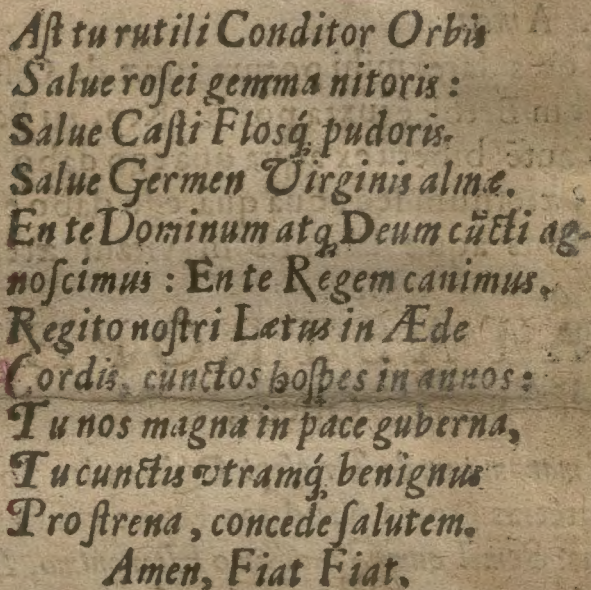 Aſt tu rutili Conditor Orbis
Salue roſei gemma nitoris :
Salue Caſti Floſq́; pudoris.
Salue Germen Virginis almæ.
En te Dominum atq; Deum cũcti ag-
noſcimus : En te Regem canimus.
Regito noſtri Lætus in Æde
Cordis, cunctos hoſpes in annos :
Tu nos magna in pace guberna,
Tu cunctis vtramq́; benignus
Pro ſtrena, concede ſalutem.
Amen, Fiat Fiat.